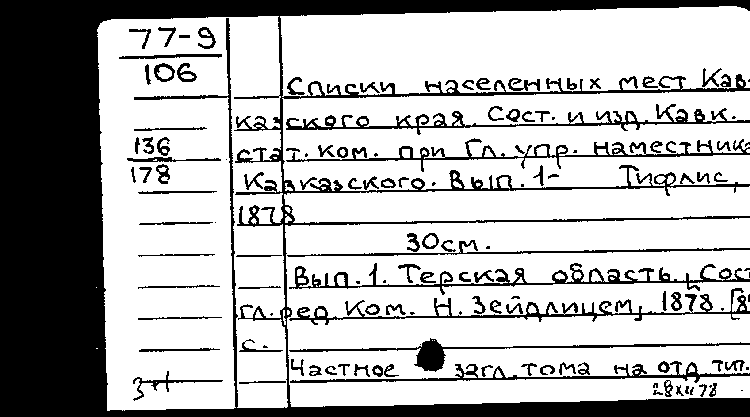 77-9
106
Списки населенных мест Кав-
казского края. Сост. и изд. Кавк.
136
178
стат. ком. при Гл. упр. наместника
Кавказского. Вып. 1- Тифлис,
1878
30см.
Вып. 1. Терская область. Сост.
гл. ред. Ком. Н. Зейдлицем, 1878.
с.
Частное загл. тома на отд. тит.
28XII78